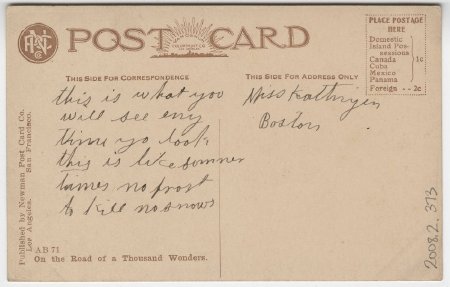 POST CARD
PLACE POSTAGE
HERE
Domestic
Island Pos-
sessions
Canada
Cuba
Mexico
Panama
1c
Foreign - - 2c
THIS SIDE FOR CORRESPONDENCE
THIS SIDE FOR ADDRESS ONLY
this is what you
will see eny
time yo look
this is like summer
times no frost
to kill no snows
Miss Kathryen
Boston
Published by Newman Post Card Co.
Los Angeles. San Francisco.
AB 71
On the Road of a Thousand Wonders.
2008.2.373